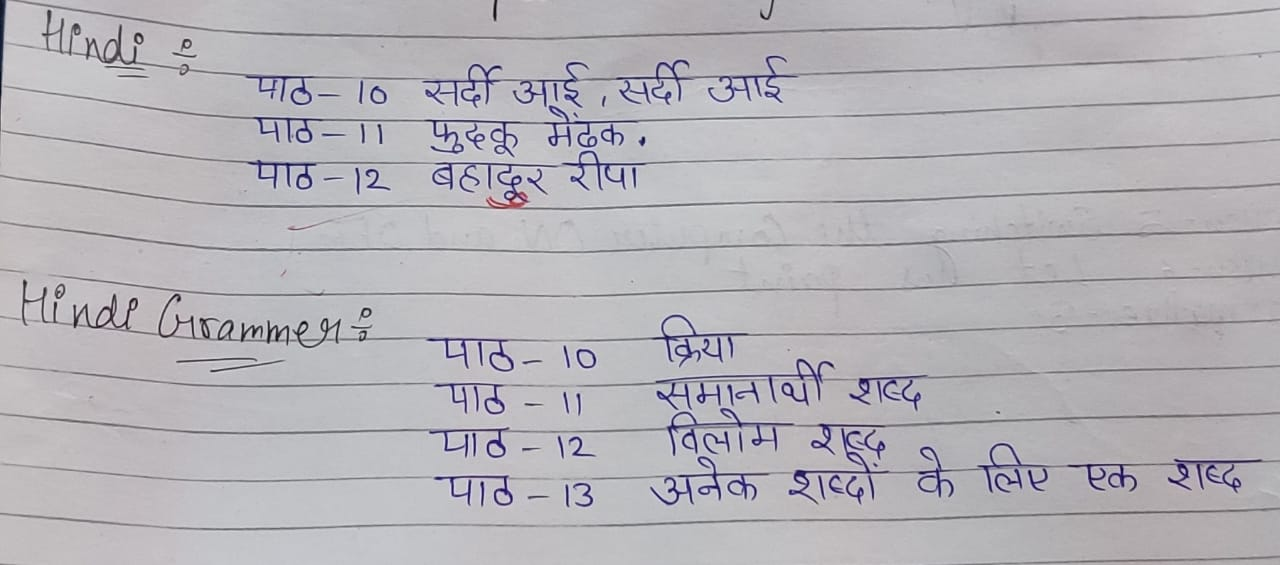 Hindi :
पाठ - 10 सर्दी आई, सर्दी आई
पाठ - 11 फुदकू मेंढक.
पाठ - 12 बहादूर रीपा
Hindi Grammer :
पाठ - 10 क्रिया
पाठ - 11 समानार्थी शब्द
पाठ - 12 विलोम शब्द
पाठ - 13 अनेक शब्दों के लिए एक शब्द